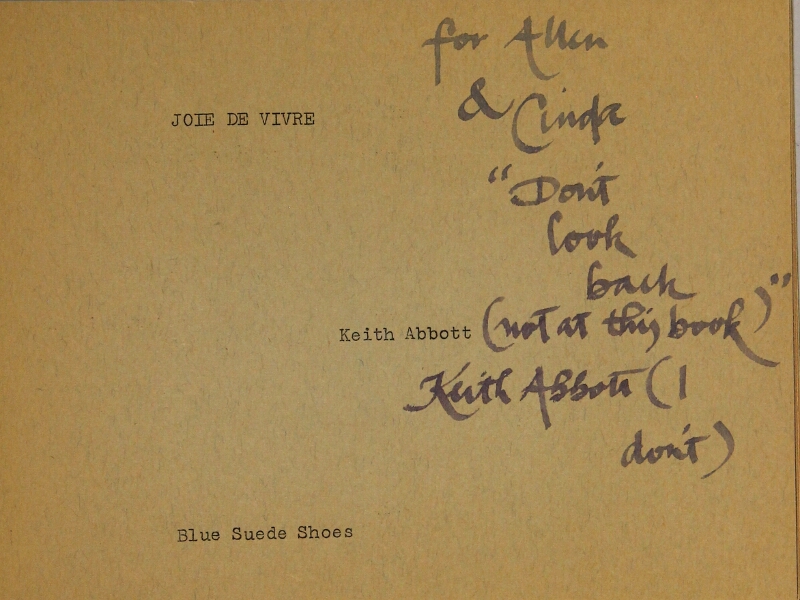 for Allen
& Cinda
JOIE DE VIVRE
"Don't
look
back
Keith Abbott
(not at this book)"
Keith Abbott (I
don't)
Blue Suede Shoes